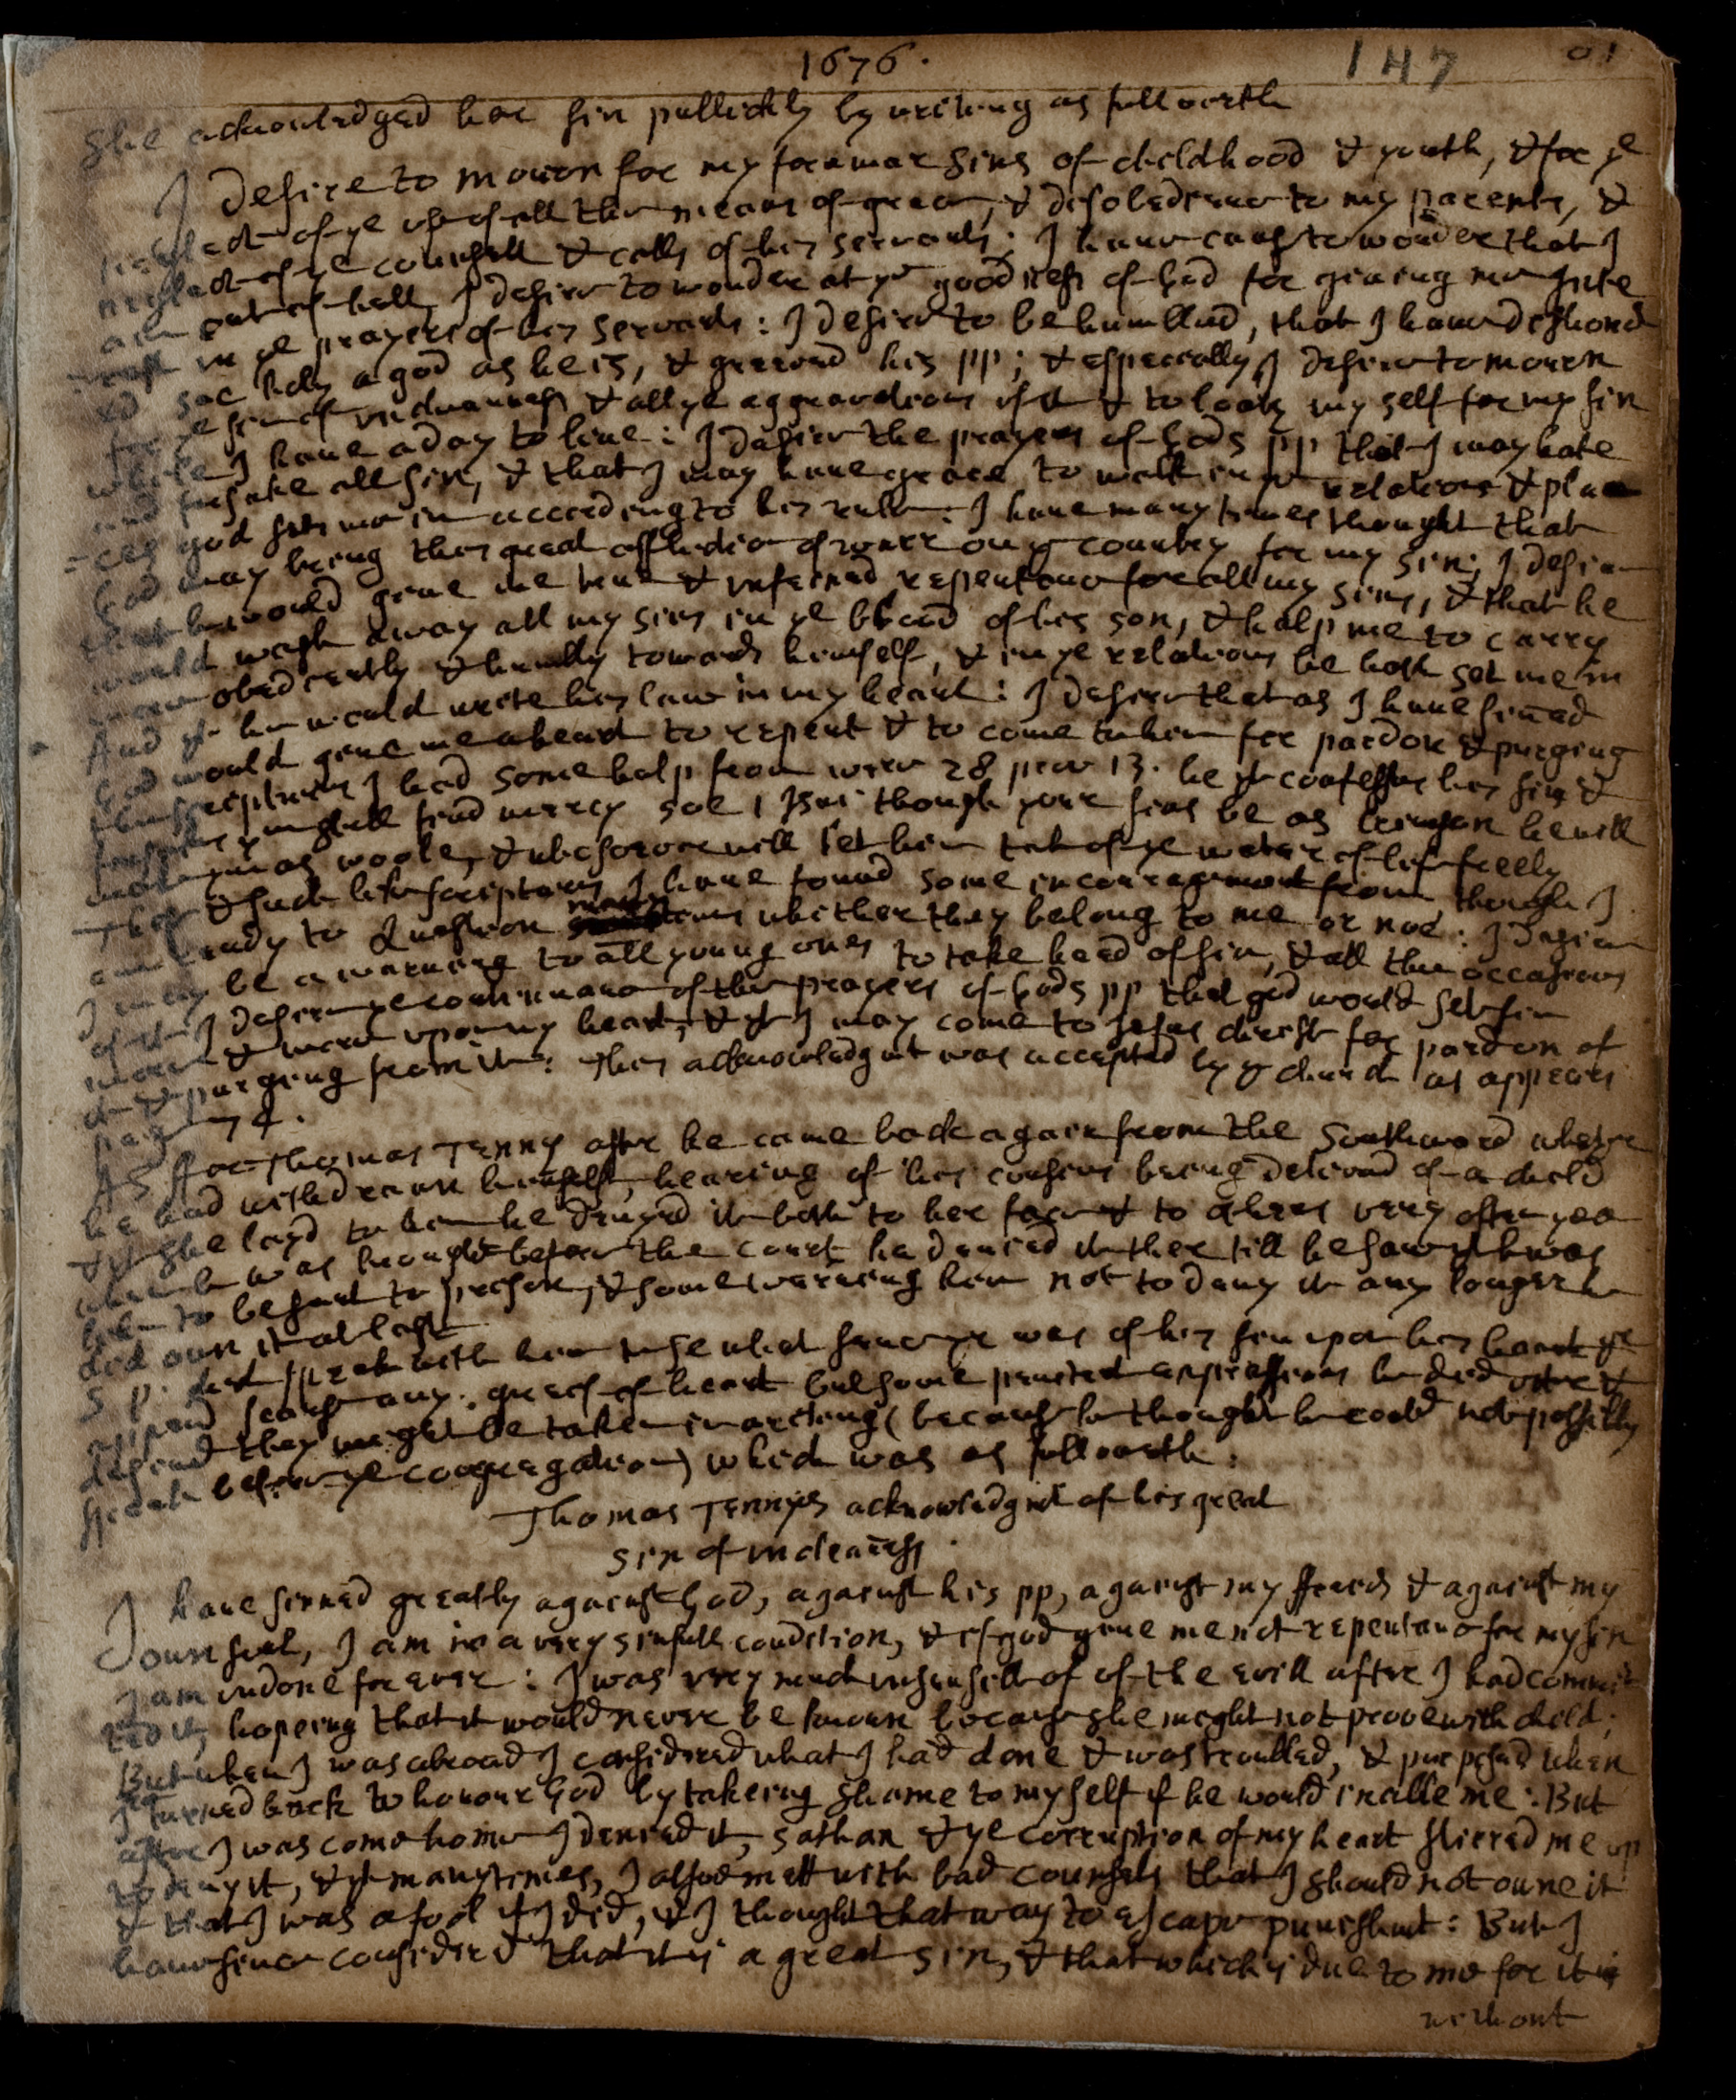 1676.
147
She acknowledged her sin publickly by writing as followeth
I desire to mourn for my foremar sins of childhood & youth, & for ye
neglect of ye use of all the means of grace, & disobedience to my parents, &
neglect of ye counsell & calls of his servants; I haue cause to wonder that I
am out of hell, I desire to wonder at ye goodness of God for giueing me Inte
rest in ye prayers of his servants: I desire to be humbled, that I haue dishonor
ed soe holy a god as he is, & greeved his pp; & especcially I desire to mourn
for ye sin of uncleannes & all ye aggravations of it & to loath my self for my sin
while I haue a day to liue: I desire the prayers of Gods pp that I may hate
and forsake all sin, & that I may haue grace to walk in ye relations & pla
-ces god sets me in according to his rule: I haue many times thought that
God may bring this great affliction of warr on ye country for my sin; I desire
that he would giue me true & unfeined repentance for all my sins, & that he
would wash away all my sins in ye blood of his son, & help me to carry
more obediently & humbly towards himself, & in ye relations he hath set me in
And yt he would write his law in my heart: I desire that as I haue sined
God would giue me a heart to repent & to come to him for pardon & purging
the scriptures I had some help from were 28 prov 13. he yt confesses his sins &
forsakes ym shall find mercy soe 1 Isai though your sins be as crimson he will
make ym as woole, & whosoever will let him take of ye water of life freely
These & such like scriptures I haue found some incouragement from though I
am ready to Question many times whither they belong to me or noe: I desire
I may be a warning to all young ones to take heed of sin, & all the occasions
of it: I desire ye continuance of the prayers of Gods pp that god would set sin
more & more upon my heart, & yt I may come to Jesus christ for pardon of
it & purging from it: This acknowledgmt was accepted by ye church as appears
pag 174.
As for Thomas Tenny after he came back again from the Southward where
he had withdrawn himself, hearing of his cousins being deliverd of a child
& yt she layd to him he denyed it both to her face & to others very often yea
when he was brought before the court he denied it ther till he saw it was
like to be sent to prison, & some warning him not to deny it any longer he
did own it at last
S. p. did speak with him to se what sence yr was of his sin upon his heart yr
appeard scarse any greef of heart but some penitent expressions he did utter &
desired they might be taken in writing (because he thought he could not possibly
speak before ye congregation) which was as followeth:
Thomas Tennys acknowledgmt of his great
sin of uncleanness.
I haue sinned greatly against God, against his pp, against my friends & against my
own soul, I am in a very sinfull condition, & if god giue me not repentance for my sin
I am undone for ever: I was very much insensible of of the evill after I had commit
ted it, hopeing that it would never be known because she might not proove with child;
But when I was abroad I considired what I had done & was troubled, & purposed when
I returned back to honour God by takeing shame to my self if he would inable me: But
after I was come home I denied it, sathan & ye corruption of my heart stirred me up
to deny it, & yt many times, I also mett with bad counsels that I should not owne it
& that I was a fool if I did, & I thought that way to escape punishmt: But I
haue since considired that it is a great sin, & that which is due to me for it is
without